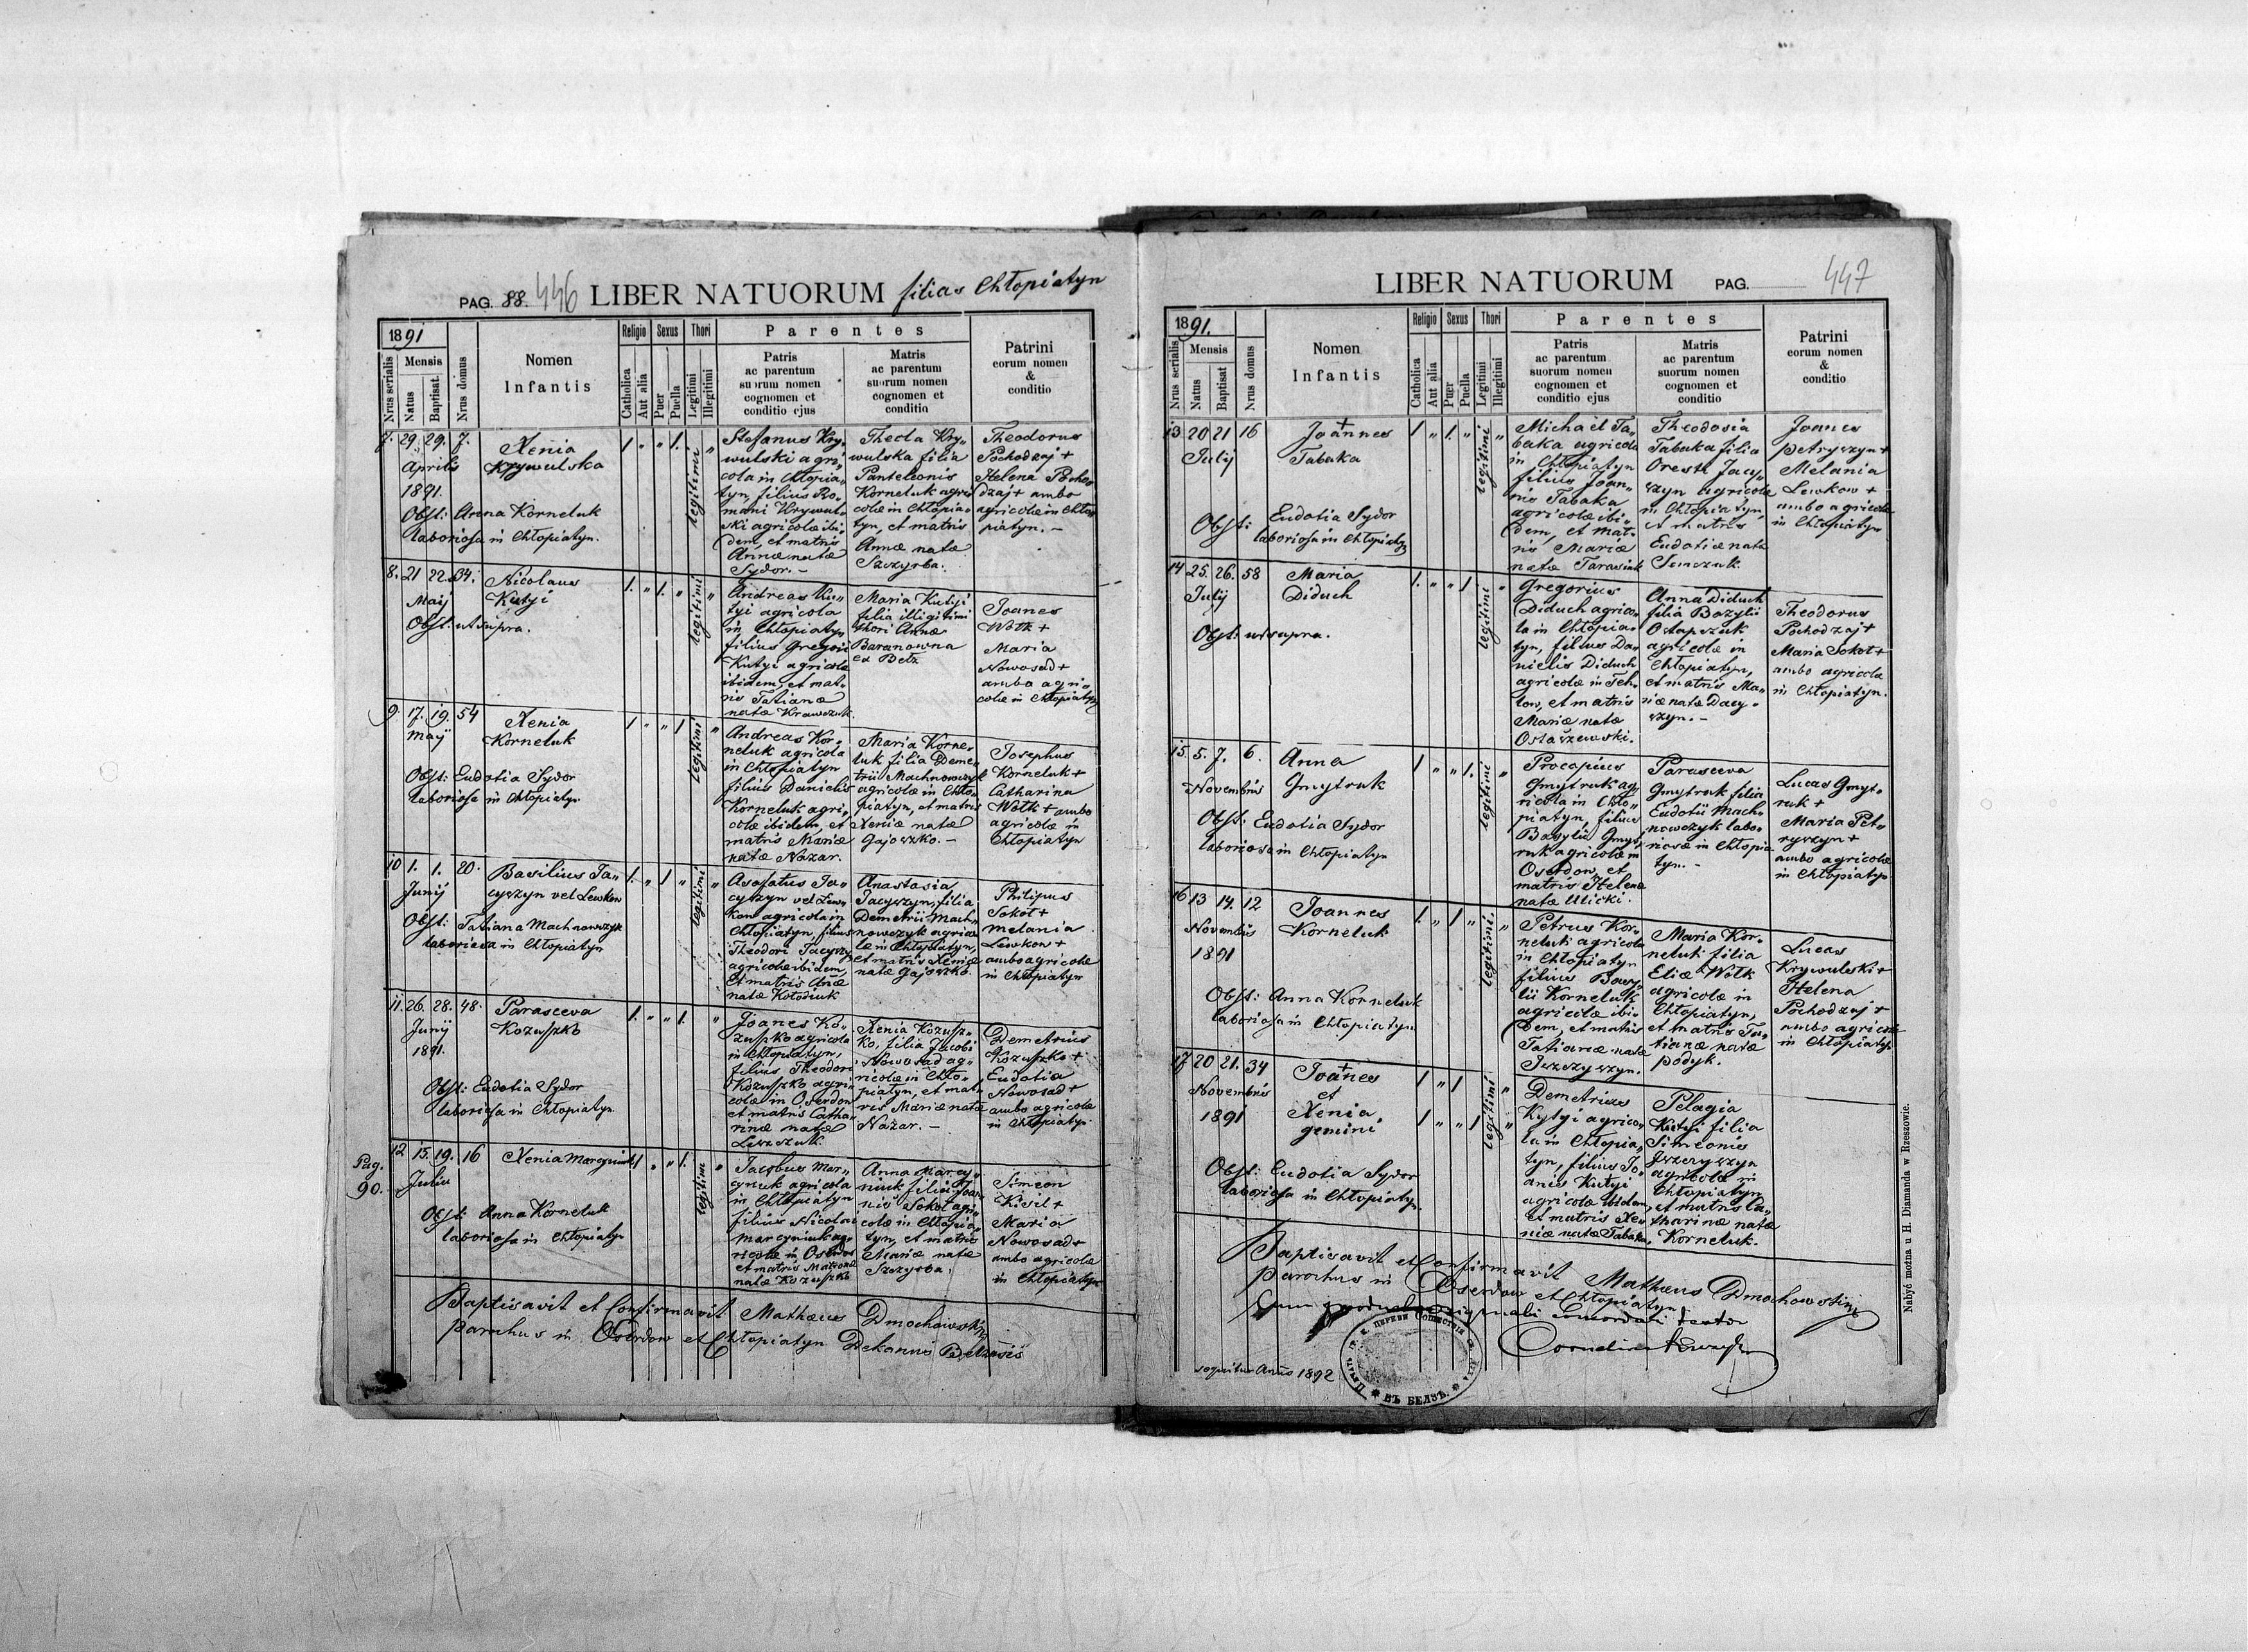 PAG. 88. 446 LIBER NATUORUM filias Chłopiatyn
1891
Nrus serialis
Mensis
Natus
Baptisat.
Nrus domus
Nomen
Infantis
Religio
Catholica
Aut alia
Sexus
Puer
Puella
Thori
Legitimi
Illegitimi
Parentes
Patris
ac parentum
suorum nomen
cognomen et
conditio ejus
Matris
ac parentum
suorum nomen
cognomen et
conditio
Patrini
eorum nomen
&
conditio
7. 29. 29. 7.
Aprilis
1891.
Xenia
Krywulska
Obst: Anna Korneluk
laboriosa in Chłopiatyn.
1 " " 1. legitimi "
Stefanus Kry-
wulski agri-
cola in Chłopia-
tyn, filius Ro-
mani Krywul-
ski agricolæ ibi-
dem, et matris
Annæ natæ
Sydor. -
Thecla Kry-
wulska filia
Panteleonis
Korneluk agri
colæ in Chłopia-
tyn, et matris
Annæ natæ
Szczyrba.
Theodorus
Pochodzaj +
Helena Pocho
dzaj + ambo
agricolæ in Chło
piatyn. -
8. 21 22. 34.
Maij
Nicolaus
Kutyi
Obst: ut supra.
1. " 1. " legitimi "
Andreas Ku-
tyi agricola
in Chłopiatyn
filius Gregorii
Kutyi agricolæ
ibidem, et mat-
ris Tatianæ
natæ Krawczuk.
Maria Kutyi
filia illigitimi
thori Annæ
Baranowna
ex Bełz
Joanes
Wołk +
Maria
Nowosad +
ambo agri-
colæ in Chłopiatyn
9. 17. 19. 54
Maij
Xenia
Korneluk
Obst: Eudotia Sydor
laboriosa in Chłopiatyn
1 " " 1. legitimi "
Andreas Kor-
neluk agricola
in Chłopiatyn
filius Danielis
Korneluk agri-
colæ ibidem, et
matris Mariæ
natæ Nazar.
Maria Korne-
luk filia Deme-
trii Machnowczyk
agricolæ in Chło-
piatyn, et matris
Xeniæ natæ
Gajowzko. -
Josephus
Korneluk +
Catharina
Wołk + ambo
agricolæ in
Chłopiatyn
10 1. 1. 20.
Junij
Basilius Ja-
cyszyn vel Lewkow
Obst: Tatiana Machnowczyk
laboriosa in Chłopiatyn
1. " 1 " legitimi "
Asafatus Ja-
cyszyn vel Lew-
kow agricola in
Chłopiatyn, filius
Theodori Jacyszyn
agricolæ ibidem,
et matris Anæ
natæ Kołodiuk
Anastasia
Jacyszyn, filia
Demetrii Mach-
nowczyk agrico-
læ in Chłopiatyn,
et matris Xeniæ
natæ Gajowzko.
Philipus
Sokoł +
Melania
Lewkow +
ambo agricolæ
in Chłopiatyn
11. 26. 28. 48.
Junij
1891.
Parasceva
Kozuszko
Obst: Eudotia Sydor
laboriosa in Chłopiatyn
1. " " 1. "
Joanes Ko-
zuszko agricola
in Chłopiatyn,
filius Theodori
Kozuszko agri-
colæ in Oserdow
et matris Catha-
rinæ natæ
Lewczuk.
Xenia Kozusz-
ko, filia Jacobi
Nowosad ag-
ricolæ in Chło-
piatyn, et mat-
ris, Mariæ natæ
Nazar. -
Demetrius
Kozuszko +
Eudotia
Nowosad +
ambo agricolæ
in Chłopiatyn
Pag.
90.
12 15. 19. 16
Julii
Xenia Marcyniuk
Obst: Anna Korneluk
laboriosa in Chłopiatyn
1 " " 1. legitimi "
Jacobus Mar-
cyniuk agricola
in Chłopiatyn
filius Nicolai
Marcyniuk ag-
ricolæ in Oserdow
et matris Matronæ
natæ Kozuszko
Anna Marcy-
niuk filia Joan-
nis Sokoł agri-
colæ in Chłopia-
tyn, et matris
Mariæ natæ
Szczyrba.
Simeon
Kisil +
Maria
Nowosad +
ambo agricolæ
in Chłopiatyn
Baptisavit et Confirmavit Mathæus Dmochowski
Parochus in Oserdow et Chłopiatyn Dekanus Belzensis
LIBER NATUORUM PAG. 447
1891.
Nrus serialis
Mensis
Natus
Baptisat
Nrus domus
Nomen
Infantis
Religio
Catholica
Aut alia
Sexus
Puer
Puella
Thori
Legitimi
Illegitimi
Parentes
Patris
ac parentum
suorum nomen
cognomen et
conditio ejus
Matris
ac parentum
suorum nomen
cognomen et
conditio
Patrini
eorum nomen
&
conditio
13 20 21 16
Julij
Joannes
Tabaka
Obst: Eudotia Sydor
laboriosa in Chłopiatyn
1 " 1. " legitimi "
Michaël Ta-
baka agricola
in Chłopiatyn
filius Joan-
nis Tabaka
agricolæ ibi-
dem, et mat-
ris Mariæ
natæ Tarasiuk
Theodosia
Tabaka filia
Oresti Jacy-
szyn agricolæ
in Chłopiatyn,
et matris
Eudotiæ natæ
Semczuk.
Joanes
Petryszyn +
Melania
Lewkow +
ambo agricolæ
in Chłopiatyn
14 25. 26. 58
Julij
Maria
Diduch
Obst: ut supra.
1. " " 1 legitimi "
Gregorius
Diduch agrico-
la in Chłopia-
tyn, filius Da-
nielis Diduch
agricolæ in Teh-
low, et matris
Mariæ natæ
Ostaszewski.
Anna Diduch
filia Bazylii
Ostapczuk
agricolæ in
Chłopiatyn,
et matris Ma-
riæ natæ Dacy-
szyn. -
Theodorus
Pochodzaj +
Maria Sokoł +
ambo agricolæ
in Chłopiatyn.
15. 5. 7. 6.
Novembris
Anna
Gmytruk
Obst: Eudotia Sydor
laboriosa in Chłopiatyn
1 " " 1. legitimi "
Procopius
Gmytruk ag-
ricola in Chło-
piatyn, filius
Basylii Gmyt-
ruk agricolæ in
Oserdow, et
matris Helenæ
natæ Ulicki.
Parasceva
Gmytruk filia
Eudotii Mach-
nowczyk labo-
riosæ in Chłopia-
tyn. -
Lucas Gmyt-
ruk +
Maria Pet-
ryszyn +
ambo agricolæ
in Chłopiatyn
16 13 14. 12
Novembris
1891
Joannes
Korneluk
Obst: Anna Korneluk
laboriosa in Chłopiatyn
1. " 1 " legitimi. "
Petrus Kor-
neluk agricola
in Chłopiatyn
filius Bazy-
lii Korneluk
agricolæ ibi-
dem, et matris
Tatianæ natæ
Jwszyszyn.
Maria Kor-
neluk filia
Eliæ Wołk
agricolæ in
Chłopiatyn,
et matris Ta-
tianæ natæ
Podyk.
Lucas
Krywulski +
Helena
Pochodzaj +
ambo agricolæ
in Chłopiatyn
17 20 21. 34
Novembris
1891
Joanes
et
Xenia
gemini
Obst: Eudotia Sydor
laboriosa in Chłopiatyn
1 " 1
1 " " 1 legitimi "
Demetrius
Kytyi agrico-
la in Chłopia-
tyn, filius Jo-
anis Kutyi
agricolæ ibidem,
et matris Xe-
niæ natæ Tabaka.
Pelagia
Kutyi filia
Simeonis
agricolæ in
Chłopiatyn
et matris Ca-
tharinæ natæ
Korneluk.
Baptisavit et Confirmavit Mathæus Dmochowski
Parochus in Oserdow et Chłopiatyn
originali
sequitur Annus 1892
ВЪ БЕЛЗѢ.
Nabyć można u H. Diamanda w Rzeszowie.